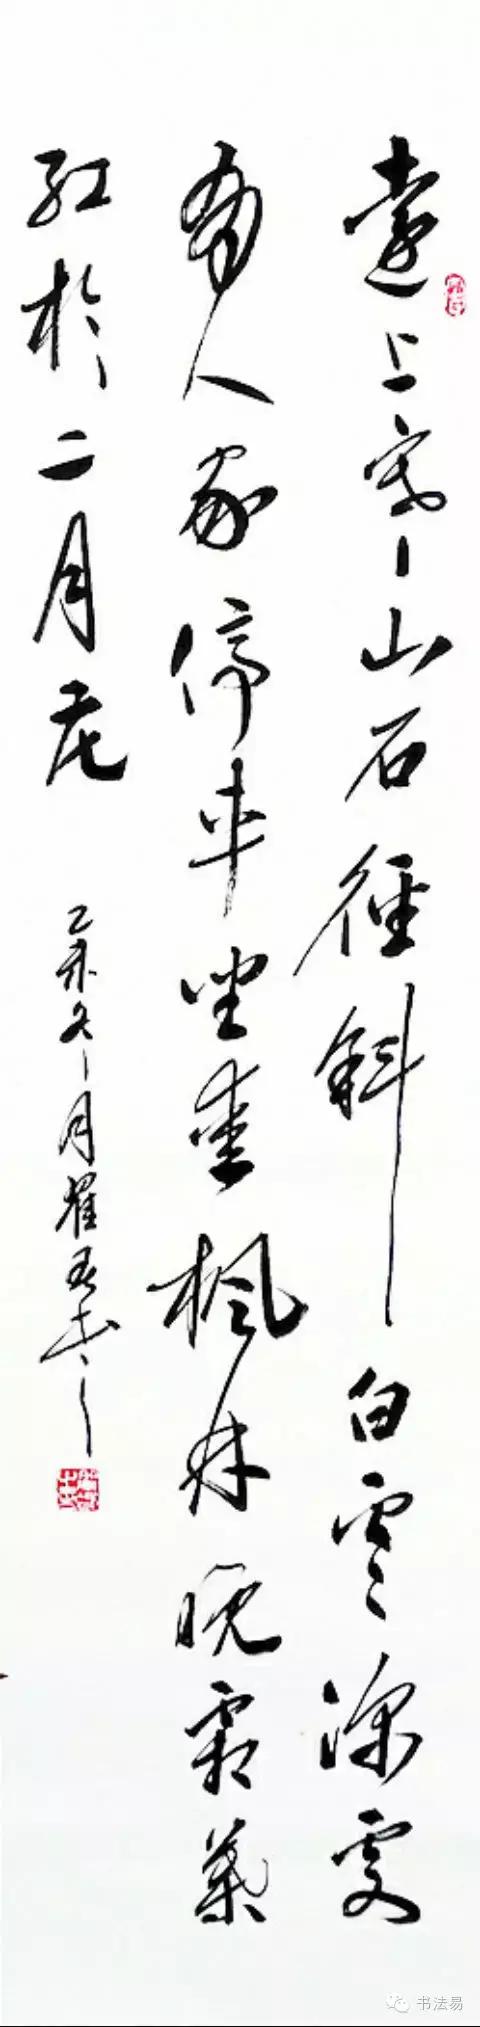 遠上寒山石徑斜白雲深處
有人家停車坐愛楓林晚霜葉
紅於二月花
冬月 書
书法易